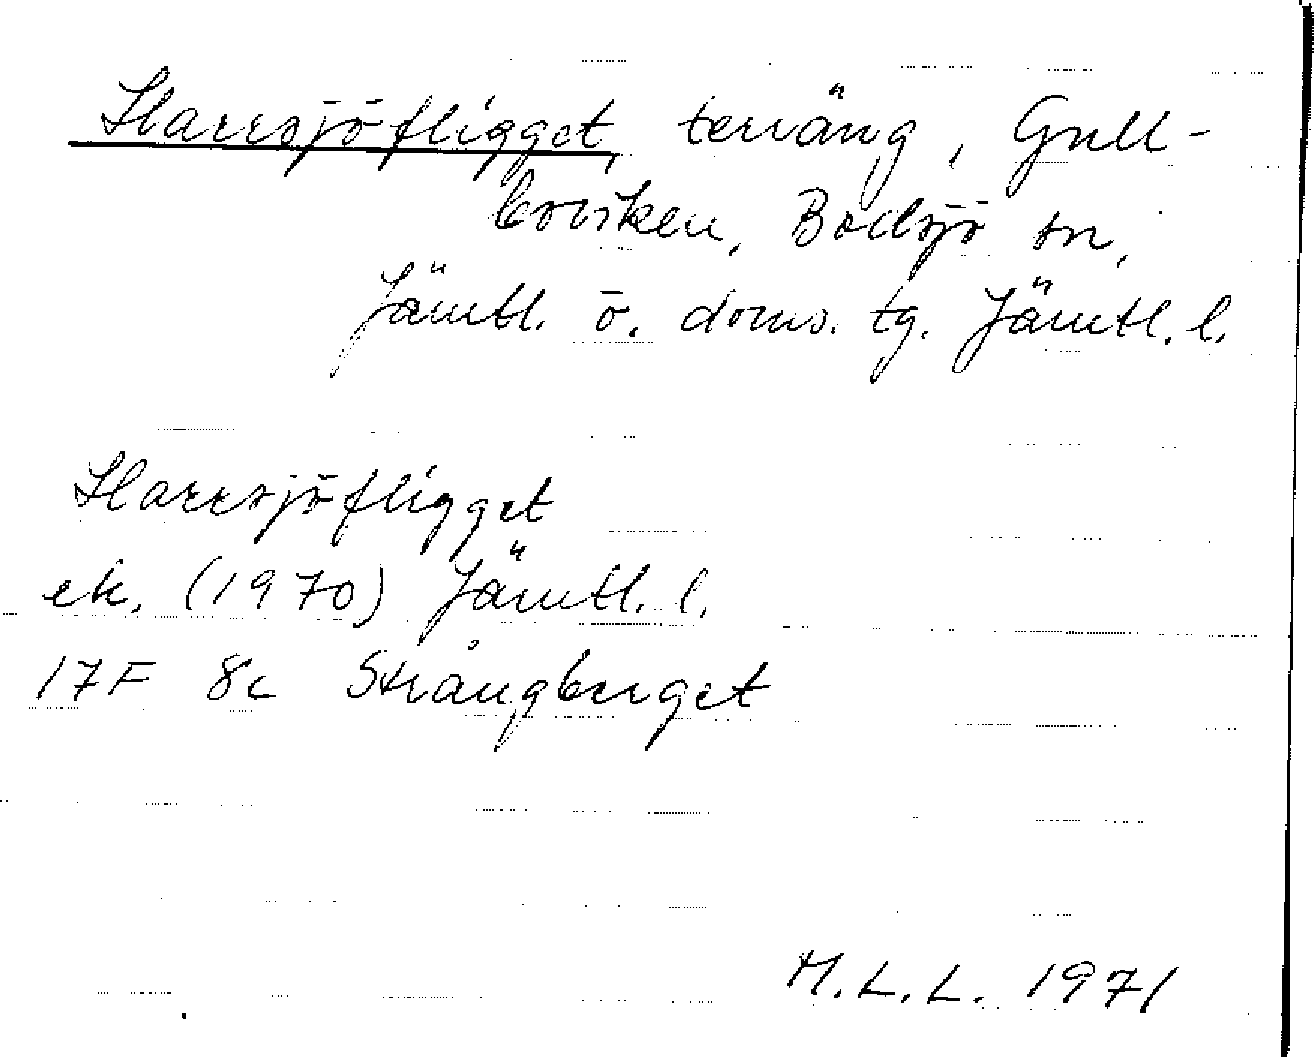 Harrsjöfligget, terräng, Gull-
boviken, Bodsjö sn,
Jämtl. ö. doms. tg. Jämtl. l.
Harrsjöfligget
ek. (1970) Jämtl. l.
17F 8c Strångberget
M.L.L. 1971